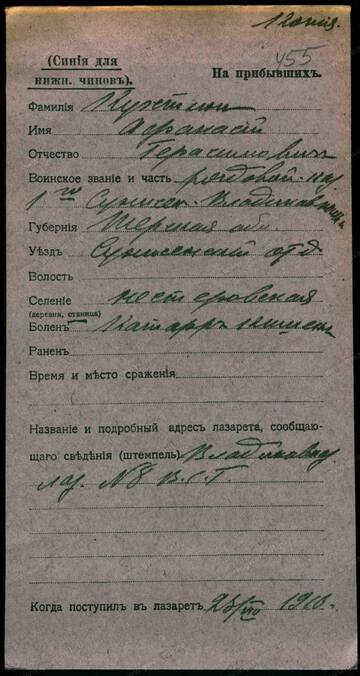 455
(Синія для
нижн. чиновъ).
На прибывшихъ.
Фамилія
Имя Афанасій
Отчество Герасимовичъ
Воинское званіе и часть рядовой
1го Сунжен. Владикав
Губернія Терская обл.
Уѣздъ Сунженскій отд.
Волость
Селеніе Нестеровская
(деревня, станица)
Боленъ Катарръ кишекъ
Раненъ
Время и мѣсто сраженія
Названіе и подробный адресъ лазарета, сообщаю-
щаго свѣдѣнія (штемпель) Владикавказ.
лаз. N8 В.С.Г.
Когда поступилъ въ лазаретъ 191